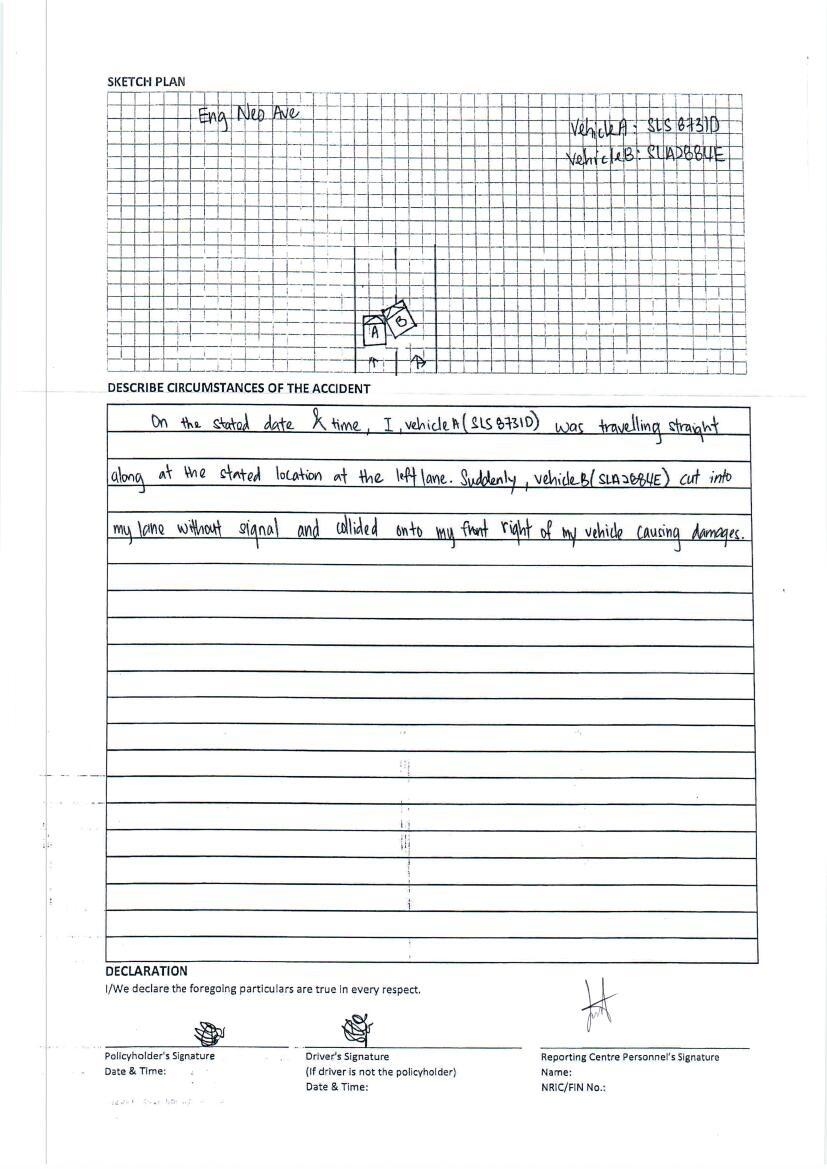 SKETCH PLAN
Eng Neo Ave
Vehicle A: SLS8731D
Vehicle B: SLA2884E
A
B
DESCRIBE CIRCUMSTANCES OF THE ACCIDENT
On the stated date & time, I, vehicle A (SLS8731D) was travelling straight
along at the stated location at the left lane. Suddenly, vehicle B (SLA2884E) cut into
my lane without signal and collided onto my front right of my vehicle causing damages.
DECLARATION
I/We declare the foregoing particulars are true in every respect.
Policyholder's Signature
Date & Time:
Driver's Signature
(If driver is not the policyholder)
Date & Time:
Reporting Centre Personnel's Signature
Name:
NRIC/FIN No.: